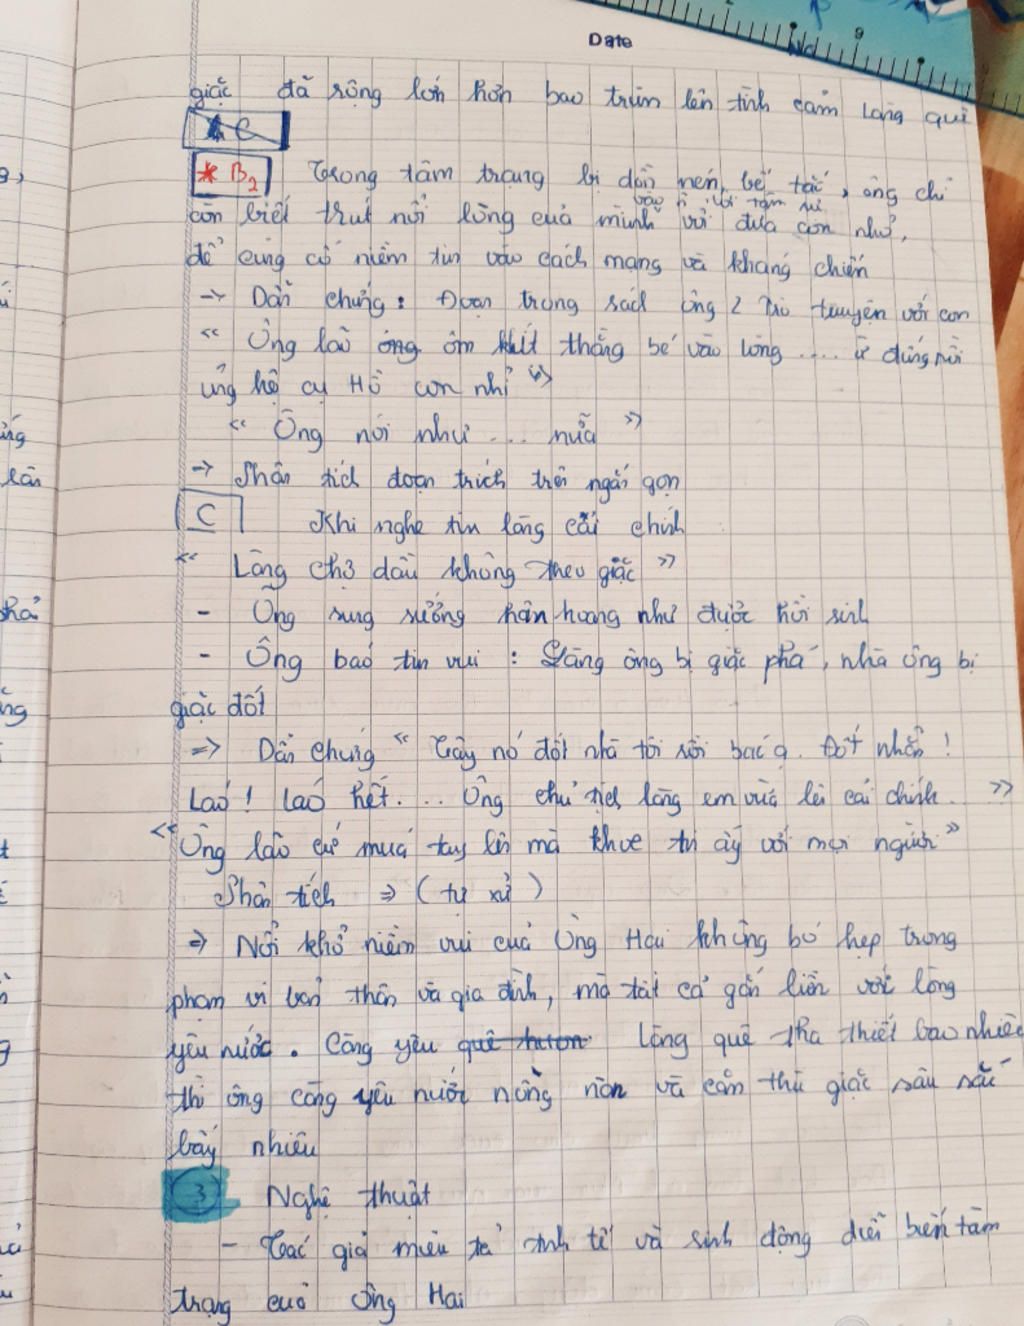 Date
giặc đã rộng lớn hơn bao trùm lên tình cảm làng quê
C
* B2 Trong tâm trạng bị dồn nén, bế tắc, ông chỉ
còn biết trút nỗi lòng của mình vào lời tâm sự với đứa con nhỏ,
để củng cố niềm tin vào cách mạng và kháng chiến
→ Dẫn chứng: Đoạn trong sách ông 2 trò truyện với con
"Ông lão ông ôm khít thằng bé vào lòng .... ừ đúng rồi
ủng hộ cụ Hồ con nhỉ"
"Ông nói như ... nữa"
→ Phân tích đoạn trích trên ngắn gọn
C Khi nghe tin làng cải chính
"Làng chợ dầu không theo giặc"
- Ông sung sướng hân hoang như được hồi sinh
- Ông báo tin vui: Làng ông bị giặc phá, nhà ông bị
giặc đốt
⇒ Dẫn chứng "Tây nó đốt nhà tôi rồi bác ạ. Đốt nhẵn!
Láo! Láo hết... Ông chủ tịch làng em vừa lên cải chính. "
"Ông lão cứ múa tay lên mà khoe tin ấy với mọi người"
Phân tích ⇒ (tự xử)
⇒ Nỗi khổ niềm vui của Ông Hai không bó hẹp trong
phạm vi bản thân và gia đình, mà tất cả gắn liền với lòng
yêu nước. Càng yêu quê hươn làng quê tha thiết bao nhiêu
thì ông càng yêu nước nồng nàn và căm thù giặc sâu sắc
bấy nhiêu
3 Nghệ thuật
- Tác giả miêu tả tinh tế và sinh động diễn biến tâm
trạng của Ông Hai